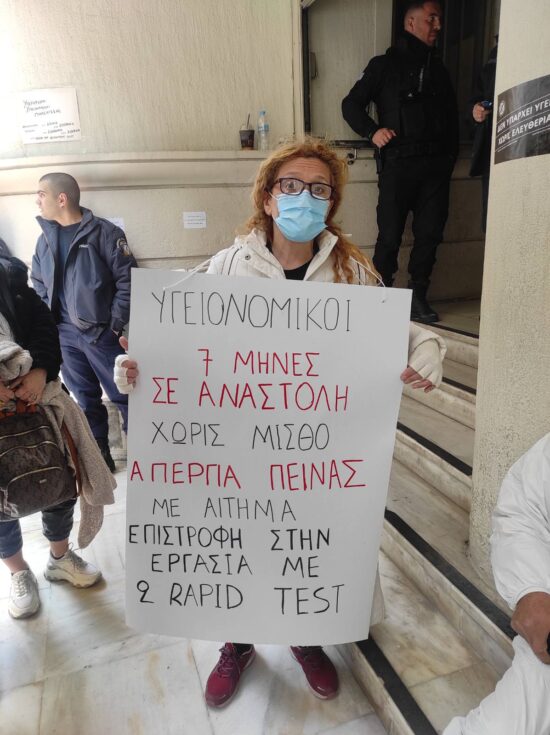 ΥΓΕΙΟΝΟΜΙΚΟΙ
7 ΜΗΝΕΣ
ΣΕ ΑΝΑΣΤΟΛΗ
ΧΩΡΙΣ ΜΙΣΘΟ
ΑΠΕΡΓΙΑ ΠΕΙΝΑΣ
ΜΕ ΑΙΤΗΜΑ
ΕΠΙΣΤΡΟΦΗ ΣΤΗΝ
ΕΡΓΑΣΙΑ ΜΕ
2 RAPID TEST
ΥΠΑΡΧΕΙ ΥΓΕ
ΕΛΕΥΘΕΡΙΑ